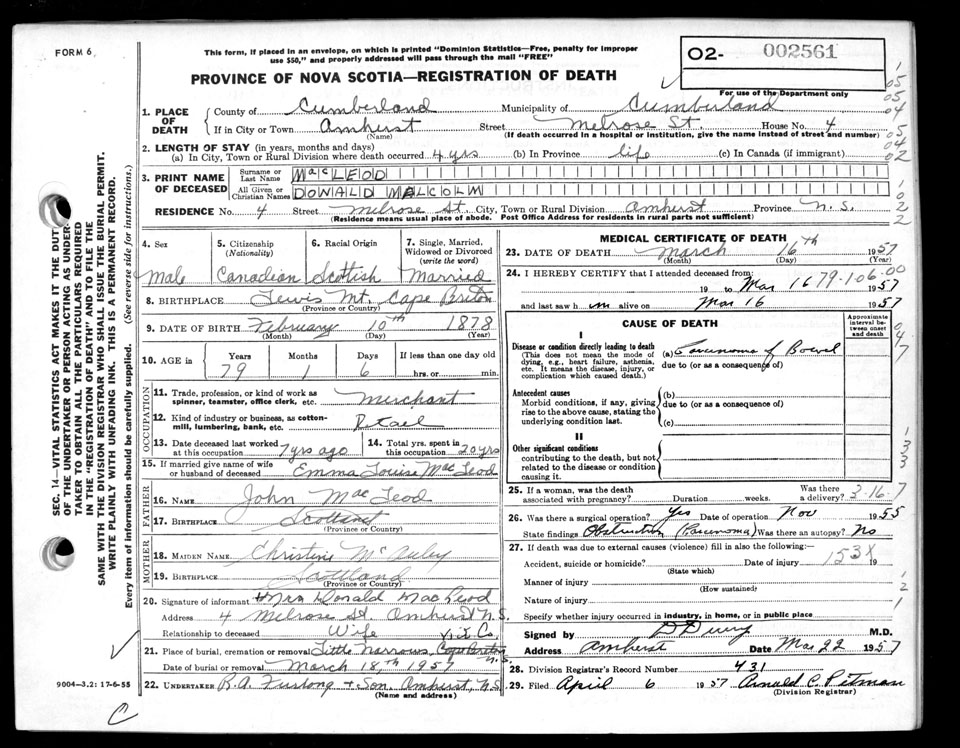 FORM 6
This form, if placed in an envelope, on which is printed "Dominion Statistics—Free, penalty for improper
use $50," and properly addressed will pass through the mail "FREE"
O2- 002561
For use of the Department only
PROVINCE OF NOVA SCOTIA—REGISTRATION OF DEATH
1. PLACE OF DEATH County of Cumberland Municipality of Cumberland
If in City or Town Amherst (Name) Street Melrose St. House No. 4
(If death occurred in a hospital or institution, give the name instead of street and number)
2. LENGTH OF STAY (in years, months and days)
(a) In City, Town or Rural Division where death occurred 4 yrs (b) In Province life (c) In Canada (if immigrant)
3. PRINT NAME OF DECEASED Surname or Last Name MacLEOD
All Given or Christian Names DOWALD MALCOLM
RESIDENCE No. 4 Street Melrose St. City, Town or Rural Division Amherst Province N.S.
(Residence means usual place of abode. Post Office Address for residents in rural parts not sufficient)
4. Sex 5. Citizenship (Nationality) 6. Racial Origin 7. Single, Married, Widowed or Divorced (write the word)
Male Canadian Scottish Married
8. BIRTHPLACE Lewis Mt. Cape Briton
(Province or Country)
9. DATE OF BIRTH February 10th 1878
(Month) (Day) (Year)
10. AGE in Years Months Days If less than one day old
79 1 6 hrs. or min.
OCCUPATION
11. Trade, profession, or kind of work as spinner, teamster, office clerk, etc. Merchant
12. Kind of industry or business, as cotton-mill, lumbering, bank, etc. Retail
13. Date deceased last worked at this occupation 7 yrs ago 14. Total yrs. spent in this occupation 20 yrs
15. If married give name of wife or husband of deceased Emma Louise MacLeod
FATHER
16. NAME John MacLeod
17. BIRTHPLACE Scotland
(Province or Country)
MOTHER
18. MAIDEN NAME Christine
19. BIRTHPLACE Scottland
(Province or Country)
20. Signature of informant Mrs Donald MacLeod
Address 4 Melrose St. Amherst N.S.
Relationship to deceased Wife Vic. Co.
21. Place of burial, cremation or removal Little Narrows, Cape Breton N.S.
Date of burial or removal March 18, th 1957
22. UNDERTAKER R.A. Furlong + Son. Amherst, N.S.
(Name and address)
MEDICAL CERTIFICATE OF DEATH
23. DATE OF DEATH March 16th 1957
(Month) (Day) (Year)
24. I HEREBY CERTIFY that I attended deceased from:
19 to Mar 16 1957
79-106-00
and last saw him alive on Mar 16 1957
CAUSE OF DEATH
Approximate interval between onset and death
I
Disease or condition directly leading to death (a) Carcinoma of Bowel
(This does not mean the mode of dying, e.g., heart failure, asthenia, etc. It means the disease, injury, or complication which caused death.)
due to (or as a consequence of)
Antecedent causes (b)
Morbid conditions, if any, giving rise to the above cause, stating the underlying condition last.
due to (or as a consequence of)
(c)
II
Other significant conditions
contributing to the death, but not related to the disease or condition causing it.
25. If a woman, was the death associated with pregnancy? Duration weeks. Was there a delivery? 3-16-7
26. Was there a surgical operation? Yes Date of operation Nov 1955
State findings Obstruction (Carcinoma) Was there an autopsy? No
27. If death was due to external causes (violence) fill in also the following:—
Accident, suicide or homicide? Date of injury 19
(State which)
153X
Manner of injury
(How sustained)
Nature of injury
Specify whether injury occurred in industry, in home, or in public place
Signed by M.D.
Address Amherst Date Mar 22 1957
28. Division Registrar's Record Number 431
29. Filed April 6 1957 Arnold C. Pitman
(Division Registrar)
SEC. 14—VITAL STATISTICS ACT MAKES IT THE DUTY
OF THE UNDERTAKER OR PERSON ACTING AS UNDER-
TAKER TO OBTAIN ALL THE PARTICULARS REQUIRED
IN THE "REGISTRATION OF DEATH" AND TO FILE THE
SAME WITH THE DIVISION REGISTRAR WHO SHALL ISSUE THE BURIAL PERMIT.
WRITE PLAINLY WITH UNFADING INK. THIS IS A PERMANENT RECORD.
Every item of information should be carefully supplied. (See reverse side for instructions.)
9004-3.2: 17-6-55
C